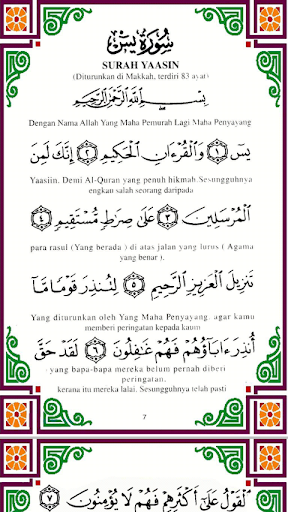 سُورَةُ يسٓ
SURAH YAASIN
(Diturunkan di Makkah, terdiri 83 ayat)
بِسْمِ اللَّهِ الرَّحْمَٰنِ الرَّحِيمِ
Dengan Nama Allah Yang Maha Pemurah Lagi Maha Penyayang
يسٓ ﴿١﴾ وَالْقُرْءَانِ الْحَكِيمِ ﴿٢﴾ إِنَّكَ لَمِنَ
Yaasiin. Demi Al-Quran yang penuh hikmah.Sesungguhnya
engkau salah seorang daripada
الْمُرْسَلِينَ ﴿٣﴾ عَلَىٰ صِرَاطٍ مُّسْتَقِيمٍ ﴿٤﴾
para rasul (Yang berada ) di atas jalan yang lurus ( Agama
yang benar ),
تَنزِيلَ الْعَزِيزِ الرَّحِيمِ ﴿٥﴾ لِتُنذِرَ قَوْمًا مَّا
Yang diturunkan oleh Yang Maha Penyayang. agar kamu
memberi peringatan kepada kaum
أُنذِرَ ءَابَآؤُهُمْ فَهُمْ غَٰفِلُونَ ﴿٦﴾ لَقَدْ حَقَّ
yang bapa-bapa mereka belum pernah diberi
peringatan.
kerana itu mereka lalai. Sesungguhnya telah pasti
7
الْقَوْلُ عَلَىٰٓ أَكْثَرِهِمْ فَهُمْ لَا يُؤْمِنُونَ ﴿٧﴾